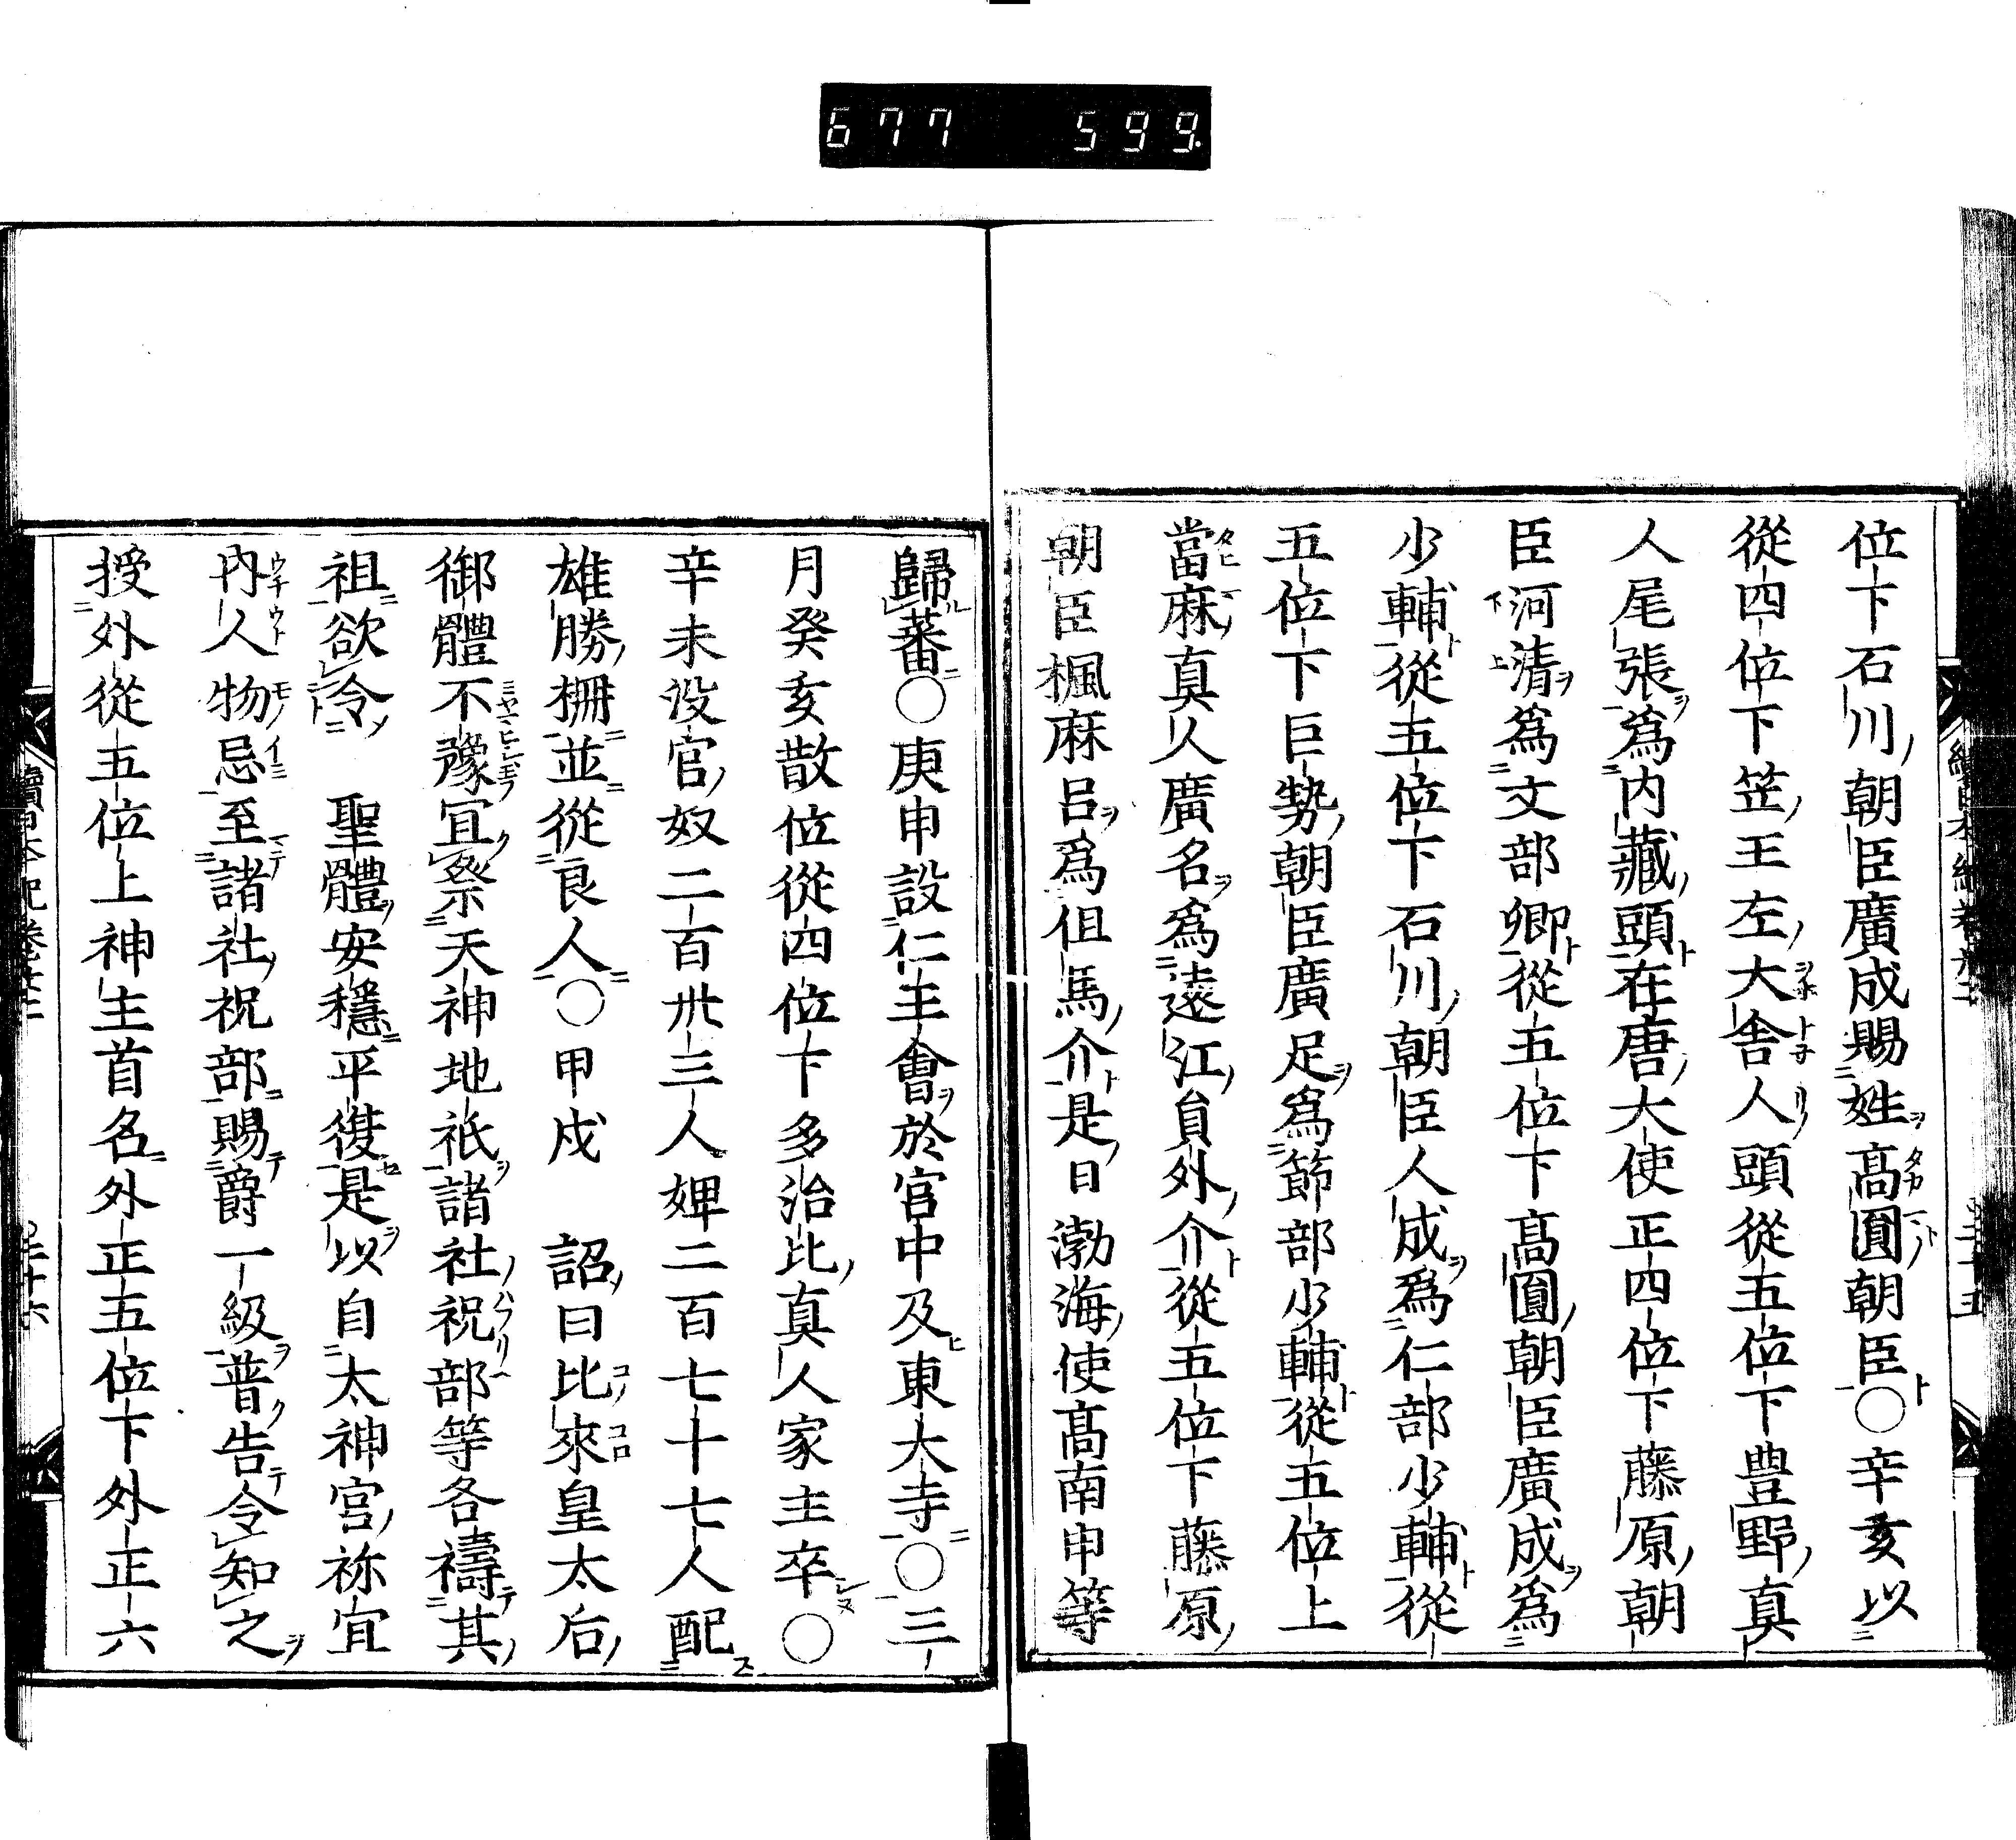 677 599.
位下石川朝臣廣成賜姓髙圓朝臣○辛亥以
從四位下笠王左大舎人頭從五位下豊野真
人尾張爲内藏頭在唐大使正四位下藤原朝
臣河清爲文部卿從五位下髙圓朝臣廣成爲
少輔從五位下石川朝臣人成爲仁部少輔從
五位下巨勢朝臣廣足爲節部少輔從五位上
當麻真人廣名爲遠江員外介從五位下藤原
朝臣楓麻呂爲但馬介是日渤海使髙南申等
歸蕃○庚申設仁王會於官中及東大寺○三
月癸亥散位從四位下多治比真人家主卒○
辛未没官奴二百卅三人婢二百七十七人配
雄勝柵並從良人○甲戌　詔曰比來皇太后
御體不豫宜祭天神地祇諸社祝部等各禱其
祖欲令　聖體安穩平復是以自太神宮祢宜
内人物忌至諸社祝部賜爵一級普告令知之
授外從五位上神主首名外正五位下外正六